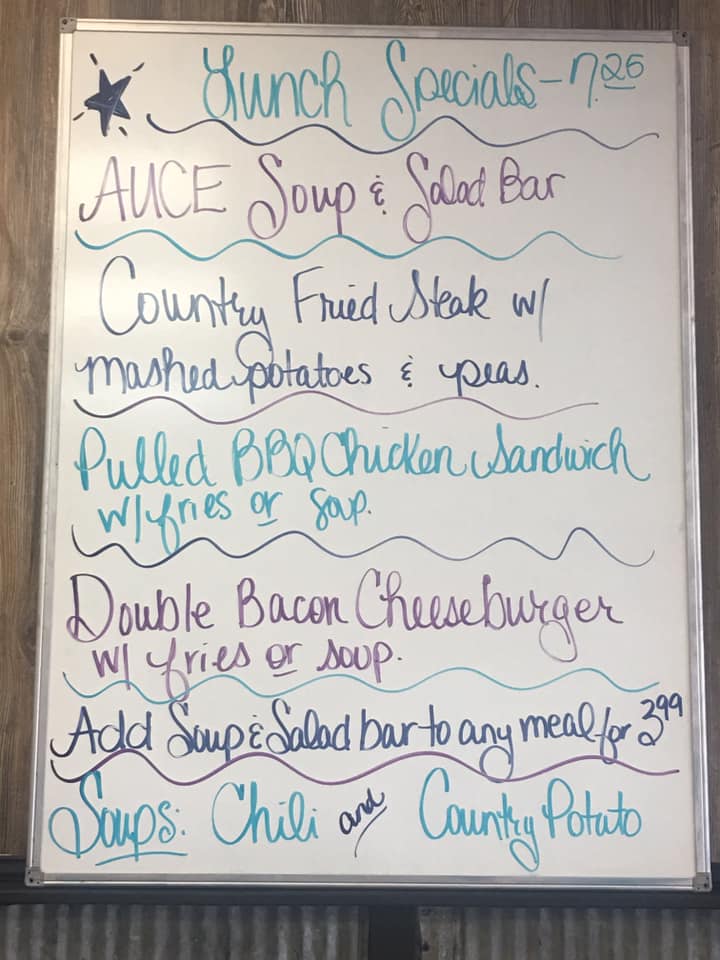 Lunch Specials - 7.25
AUCE Soup & Salad Bar
Country Fried Steak w/
mashed potatoes & peas.
Pulled BBQ Chicken Sandwich
w/ fries or soup.
Double Bacon Cheeseburger
w/ fries or soup.
Add Soup & Salad bar to any meal for 3.99
Soups: Chili and Country Potato